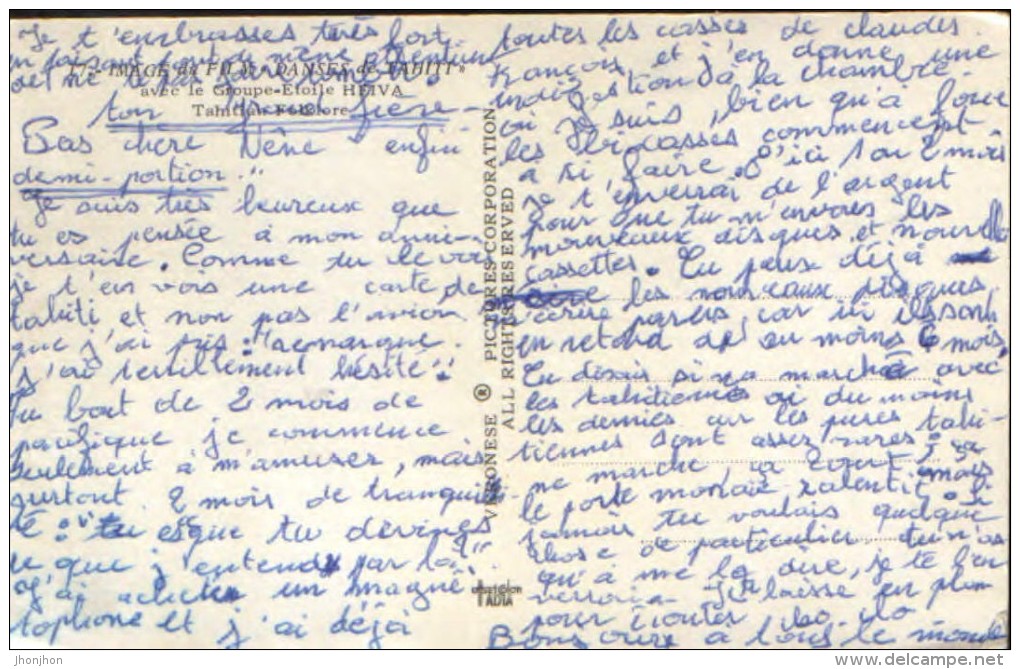 Je t'embrasses très fort
77 - IMAGE du FILM « DANSES de TAHITI »
avec le Groupe-Etoile HEIVA
Tahitian Folklore
ton frère
Bas chere Nênê enfin
demi-portion."
Je suis très heureux que
tu es pensée à mon anni-
versaire. Comme tu le voi
je t'en vois une carte de
tahiti et non pas l'avion
que j'ai pris : "remarque
j'ai terriblement hésité".
Au bout de 2 mois de
pacifique je commence
seulement à m'amuser, mais
surtout 2 mois de tranquili-
té : tu es que tu devines
ce que j'entends par là "
J'ai acheter un magné
tophone et j'ai déjà
VERONESE ® PICTURES CORPORATION
ALL RIGHTS RESERVED
TADIA
toutes les casses de claudes
François et j'en donne une
indigestion à la chambre
où je suis, bien qu'à force
les commencent
a si faire. D'ici 1 ou 2 mois
je t'enverrai de l'argent
pour que tu m'envoies les
nouveaux disques et nouvelle
cassettes. Tu peux déjà
les nouveaux disques
parus car ici ils sont
en retard d'au moins 6 mois.
Tu disais si ça marche avec
les tahitiennes ou du moins
les demies car les pures tahi-
tiennes sont assez rares : ça
ne marche ça court ; mais
le porte monnaie ralentit. Si
jamais tu voulais quelque
chose de particulier tu n'as
qu'à me le dire, je te l'en
verrais. Je laisse en plan
pour écouter
Bons à tous le monde